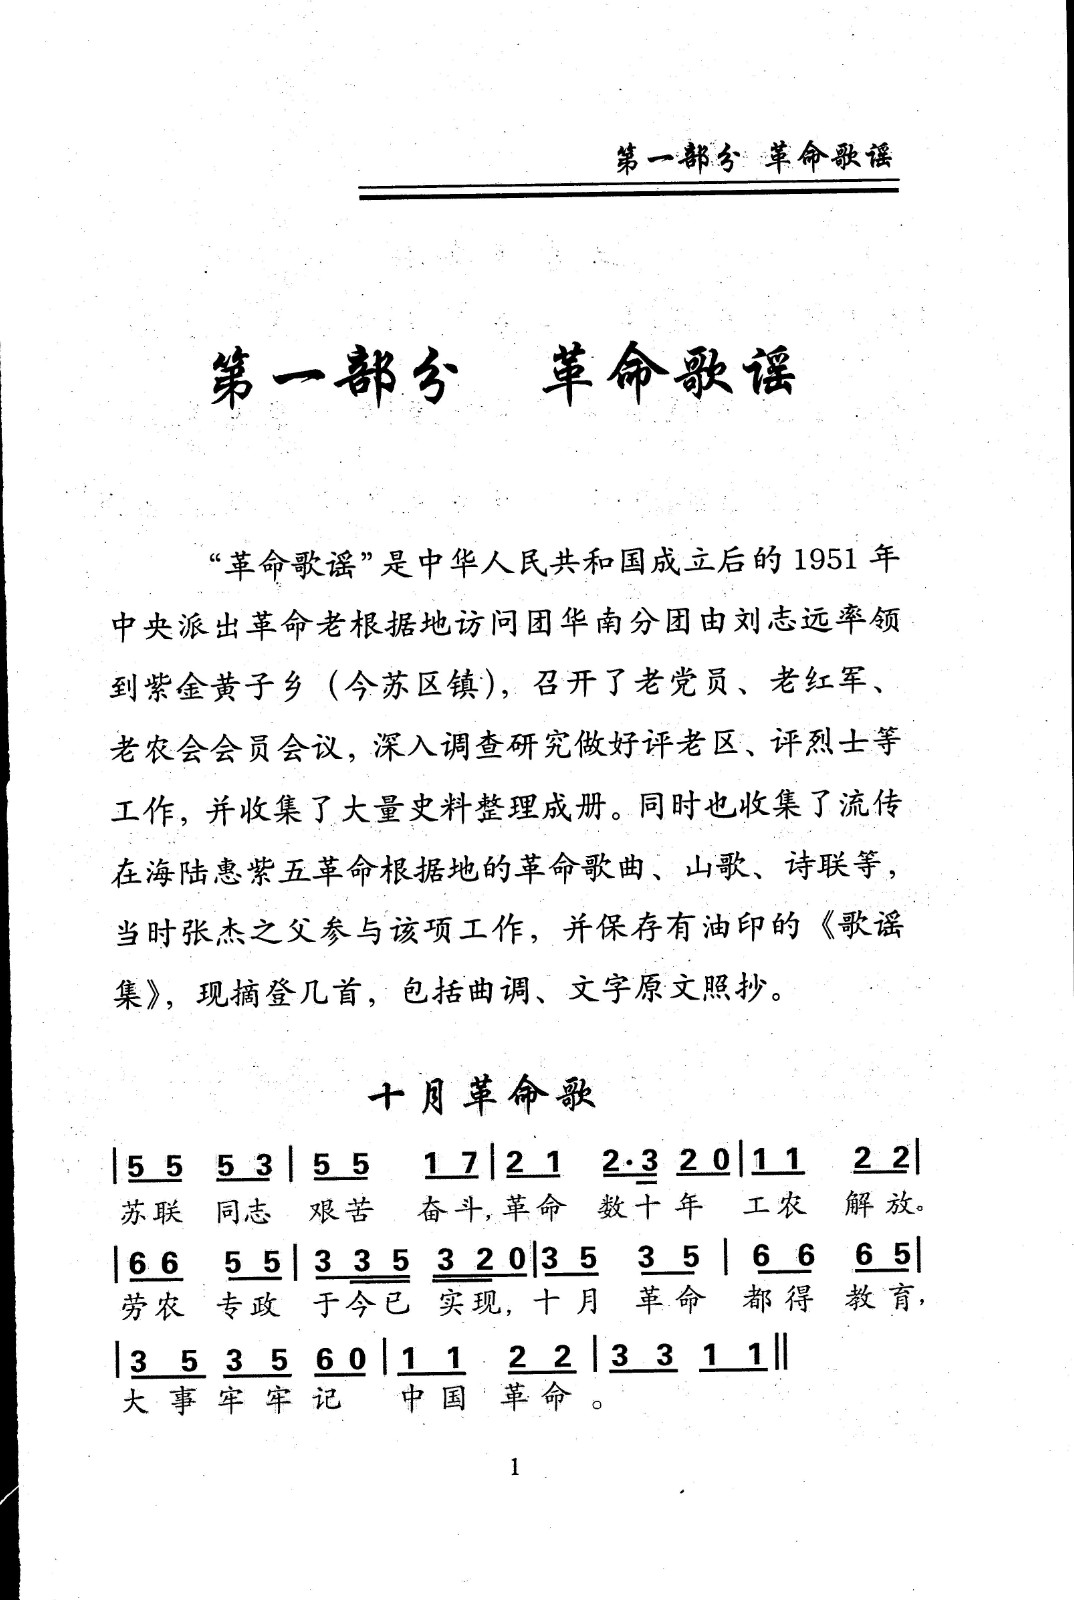 第一部分 革命歌谣
第一部分 革命歌谣
“革命歌谣”是中华人民共和国成立后的1951年
中央派出革命老根据地访问团华南分团由刘志远率领
到紫金黄子乡（今苏区镇），召开了老党员、老红军、
老农会会员会议，深入调查研究做好评老区、评烈士等
工作，并收集了大量史料整理成册。同时也收集了流传
在海陆惠紫五革命根据地的革命歌曲、山歌、诗联等，
当时张杰之父参与该项工作，并保存有油印的《歌谣
集》，现摘登几首，包括曲调、文字原文照抄。
十月革命歌
|5 5 5 3|5 5 1 7|2 1 2·3 2 0|1 1 2 2|
苏联 同志 艰苦 奋斗，革命 数十年 工农 解放。
|6 6 5 5|3 3 5 3 2 0|3 5 3 5|6 6 6 5|
劳农 专政 于今已 实现，十月 革命 都得 教育，
|3 5 3 5 6 0|1 1 2 2|3 3 1 1‖
大事牢牢记 中国 革命。
1